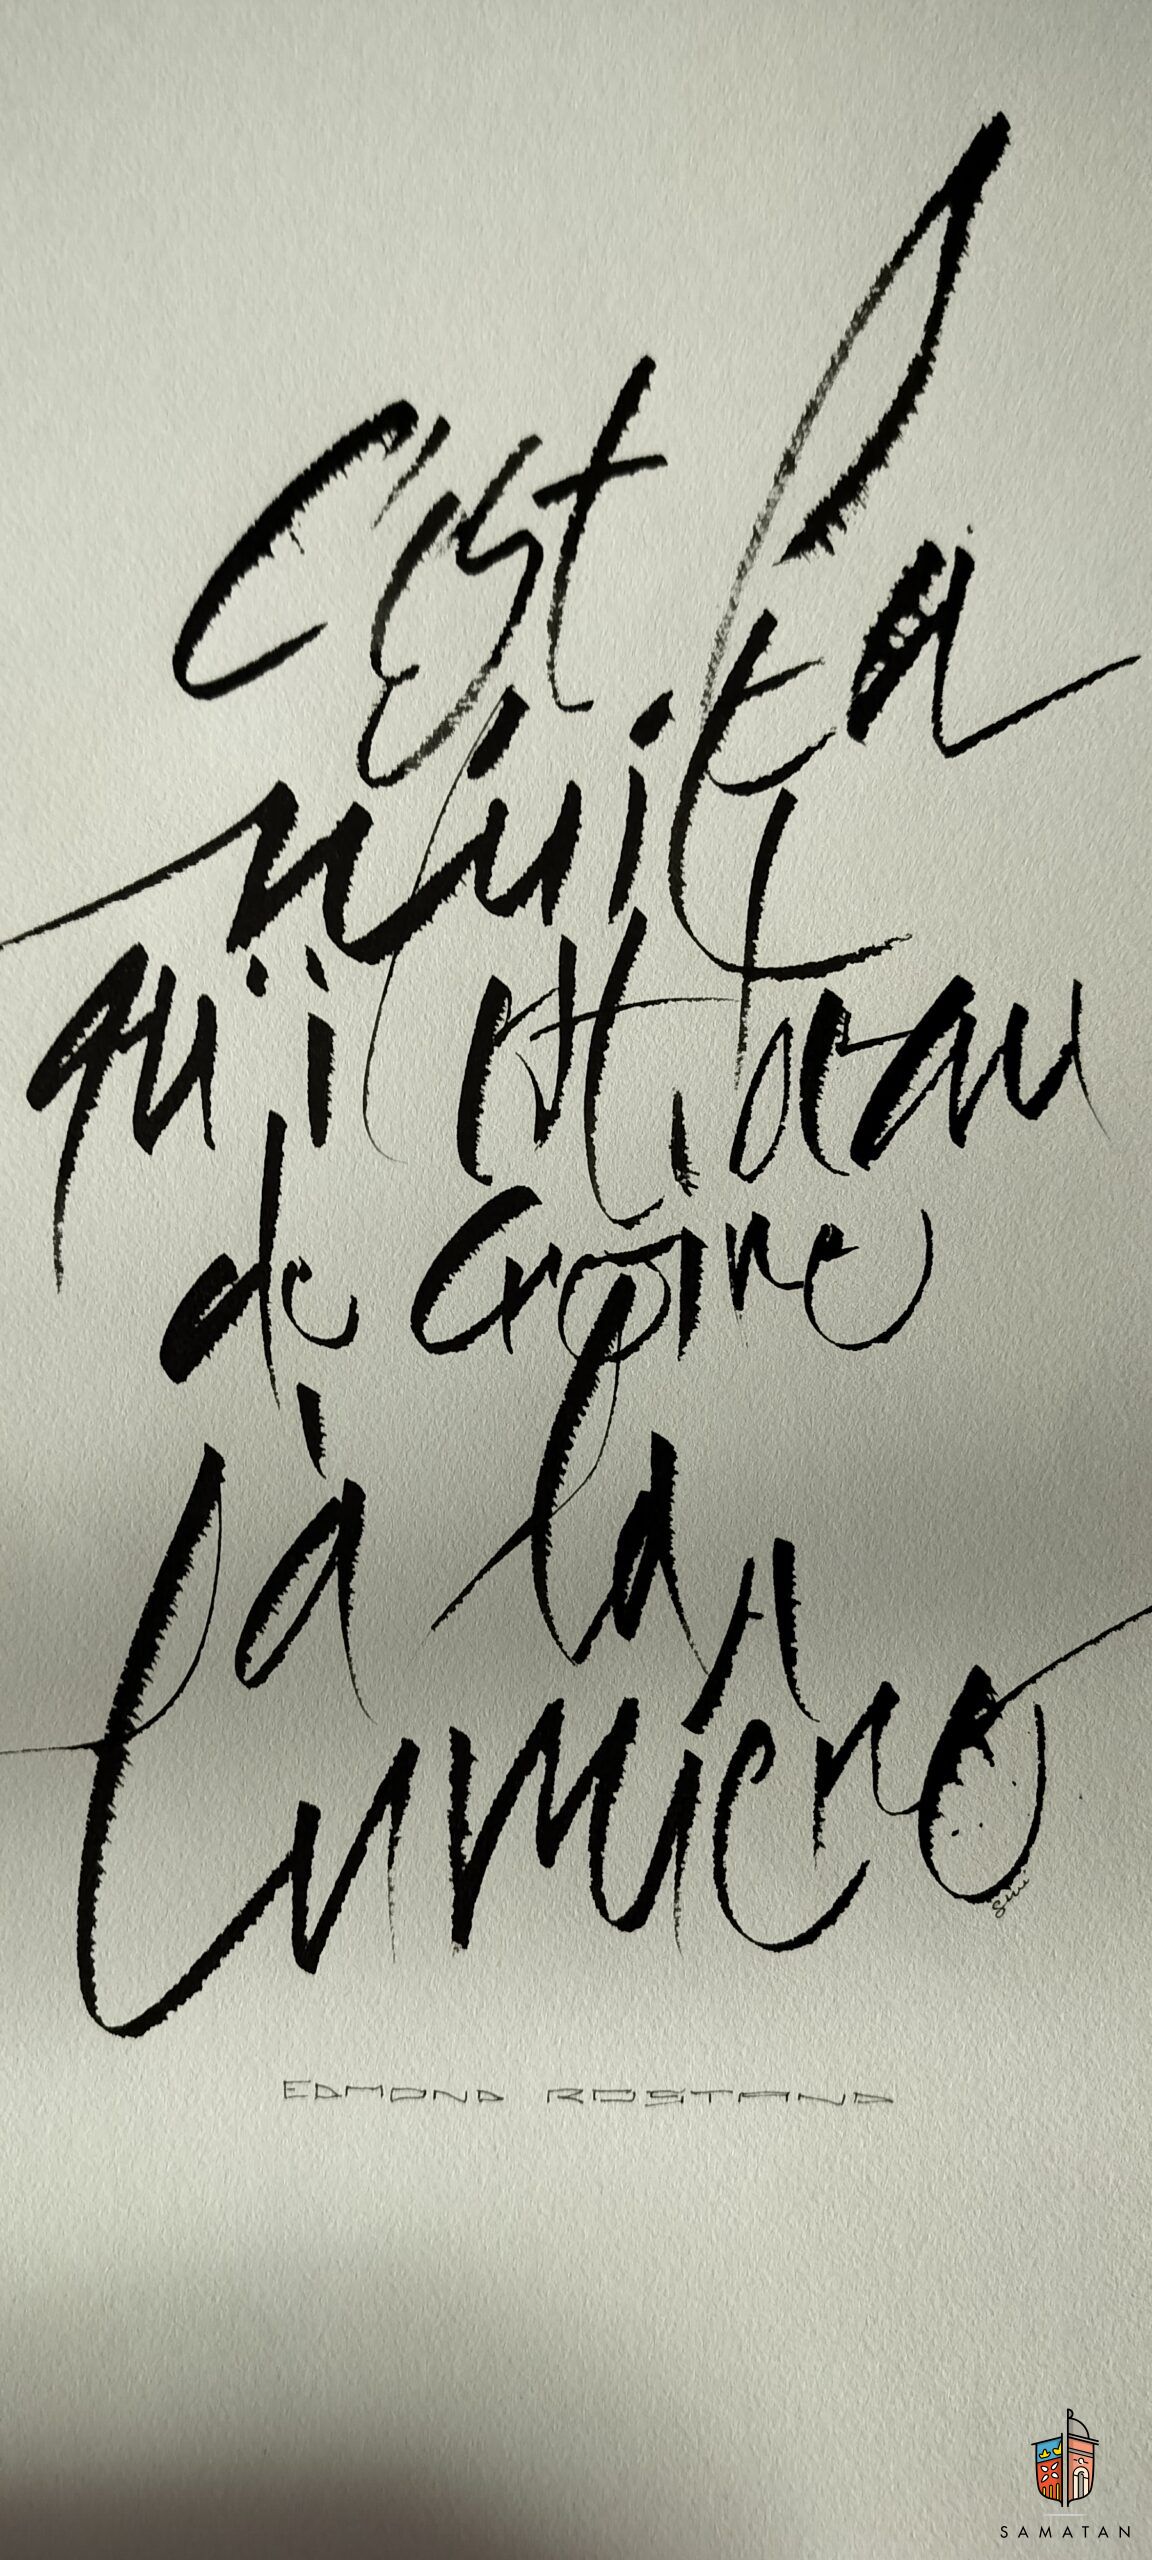 C'est la
nuit
qu'il est beau
de croire
à la
lumière
EDMOND ROSTAND
SAMATAN